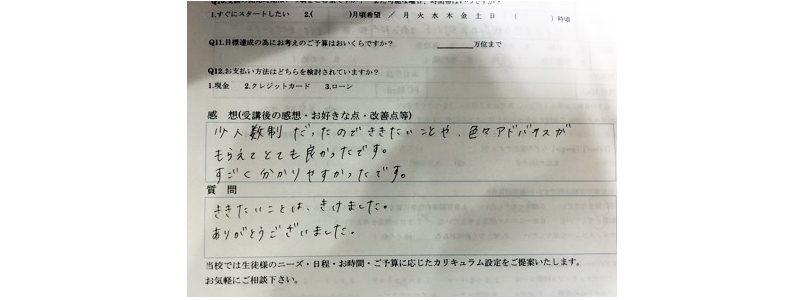 1.すぐにスタートしたい　2.(　　　)月頃希望 ／ 月 火 水 木 金 土 日　(　　　)時頃
Q11.目標達成の為にお考えのご予算はおいくらですか？　＿＿＿＿万位まで
Q12.お支払い方法はどちらを検討されていますか？
1.現金　2.クレジットカード　3.ローン
感　想(受講後の感想・お好きな点・改善点等)
少人数制だったのでききたいことや、色々アドバイスが
もらえてとても良かったです。
すごく分かりやすかったです。
質　問
ききたいことは、きけました。
ありがとうございました。
当校では生徒様のニーズ・日程・お時間・ご予算に応じたカリキュラム設定をご提案いたします。
お気軽にご相談下さい。